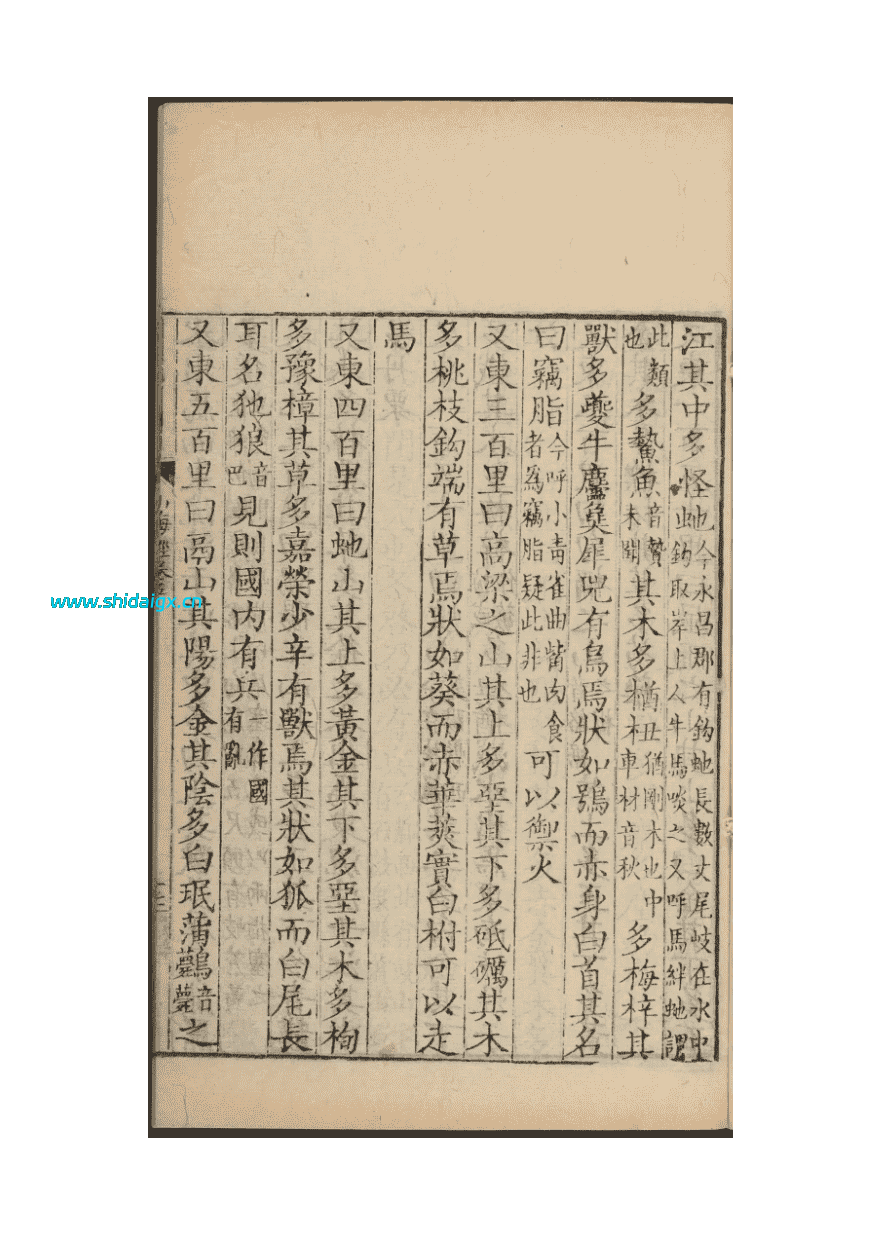 江其中多怪虵今永昌郡有鈎虵長數丈尾岐在水中鈎取岸上人牛馬啖之又呼馬絆虵謂
此類也多鷙魚音贄未聞其木多楢杻楢剛木也中車材音秋多梅梓其
獸多夔牛麢㚟犀兕有鳥焉狀如鴞而赤身白首其名
曰竊脂今呼小青雀曲觜肉食者為竊脂疑此非也可以禦火
又東三百里曰高梁之山其上多堊其下多砥礪其木
多桃枝鈎端有草焉狀如葵而赤華莢實白柎可以走
馬
又東四百里曰虵山其上多黃金其下多堊其木多栒
多豫樟其草多嘉榮少辛有獸焉其狀如狐而白尾長
耳名㹠狼音巴見則國内有兵一作國有亂
又東五百里曰鬲山其陽多金其隂多白珉蒲鸏音薨之
山海經卷五
www.shidaigx.cn